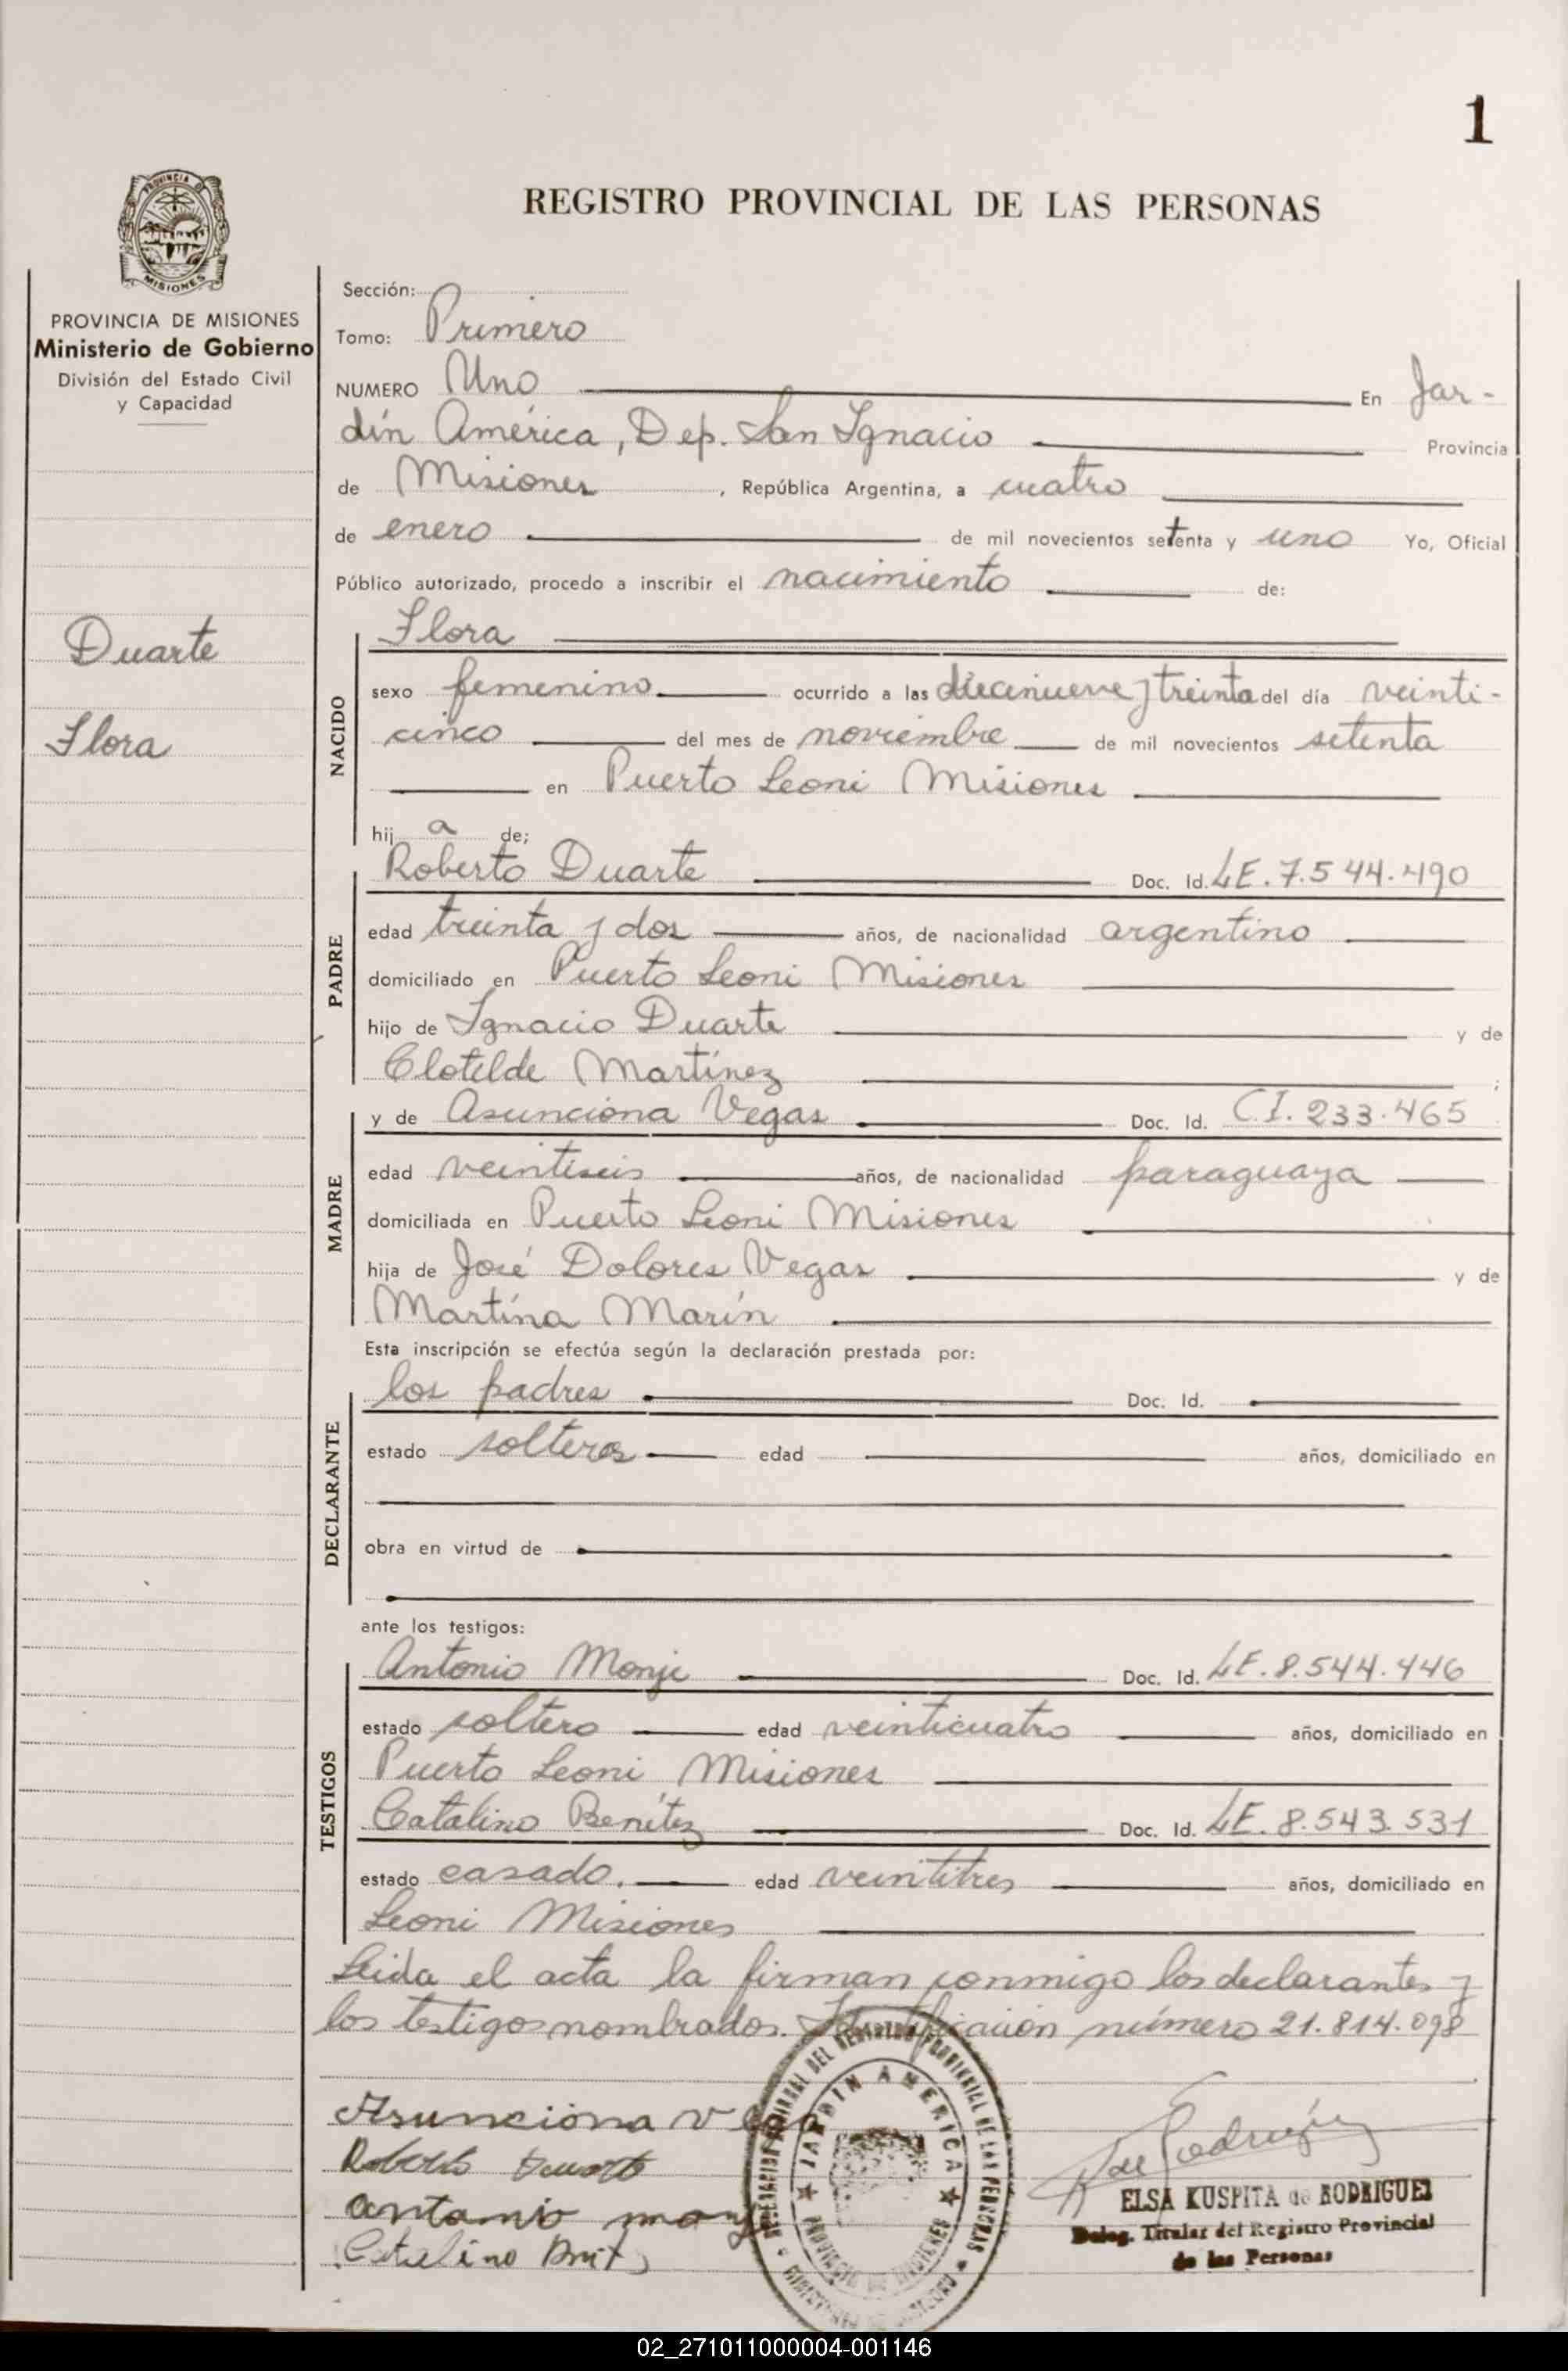 1
REGISTRO PROVINCIAL DE LAS PERSONAS
PROVINCIA DE
MISIONES
PROVINCIA DE MISIONES
Ministerio de Gobierno
División del Estado Civil
y Capacidad
Duarte
Flora
Sección:
Tomo: Primero
NUMERO Uno En Jar-
dín América, Dep. San Ignacio Provincia
de Misiones, República Argentina, a cuatro
de enero de mil novecientos setenta y uno Yo, Oficial
Público autorizado, procedo a inscribir el nacimiento de:
Flora
NACIDO
sexo femenino ocurrido a las diecinueve y treinta del día veinti-
cinco del mes de noviembre de mil novecientos setenta
en Puerto Leoni Misiones
hij a de;
Roberto Duarte Doc. Id. LE. 7.544.490
PADRE
edad treinta y dos años, de nacionalidad argentino
domiciliado en Puerto Leoni Misiones
hijo de Ignacio Duarte y de
Clotilde Martínez ;
y de Asunciona Vegas Doc. Id. C.I. 233.465
MADRE
edad veintiseis años, de nacionalidad paraguaya
domiciliada en Puerto Leoni Misiones
hija de José Dolores Vegas y de
Martína Marín
Esta inscripción se efectúa según la declaración prestada por:
los padres Doc. Id.
DECLARANTE
estado solteros edad años, domiciliado en
obra en virtud de
ante los testigos:
Antonio Monje Doc. Id. LE. 8.544.446
TESTIGOS
estado soltero edad veinticuatro años, domiciliado en
Puerto Leoni Misiones
Catalino Benítez Doc. Id. LE. 8.543.531
estado casado. edad veintitres años, domiciliado en
Leoni Misiones
Leida el acta la firman conmigo los declarantes y
los testigos nombrados. Identificación número 21.814.098
Asunciona
Roberto Duarte
antonio
Catalino
JARDIN AMERICA
PROVINCIA DE MISIONES
DEL REGISTRO PROVINCIAL DE LAS PERSONAS
de Rodriguez
ELSA KUSPITA de RODRIGUEZ
Deleg. Titular del Registro Provincial
de las Personas
02_271011000004-001146